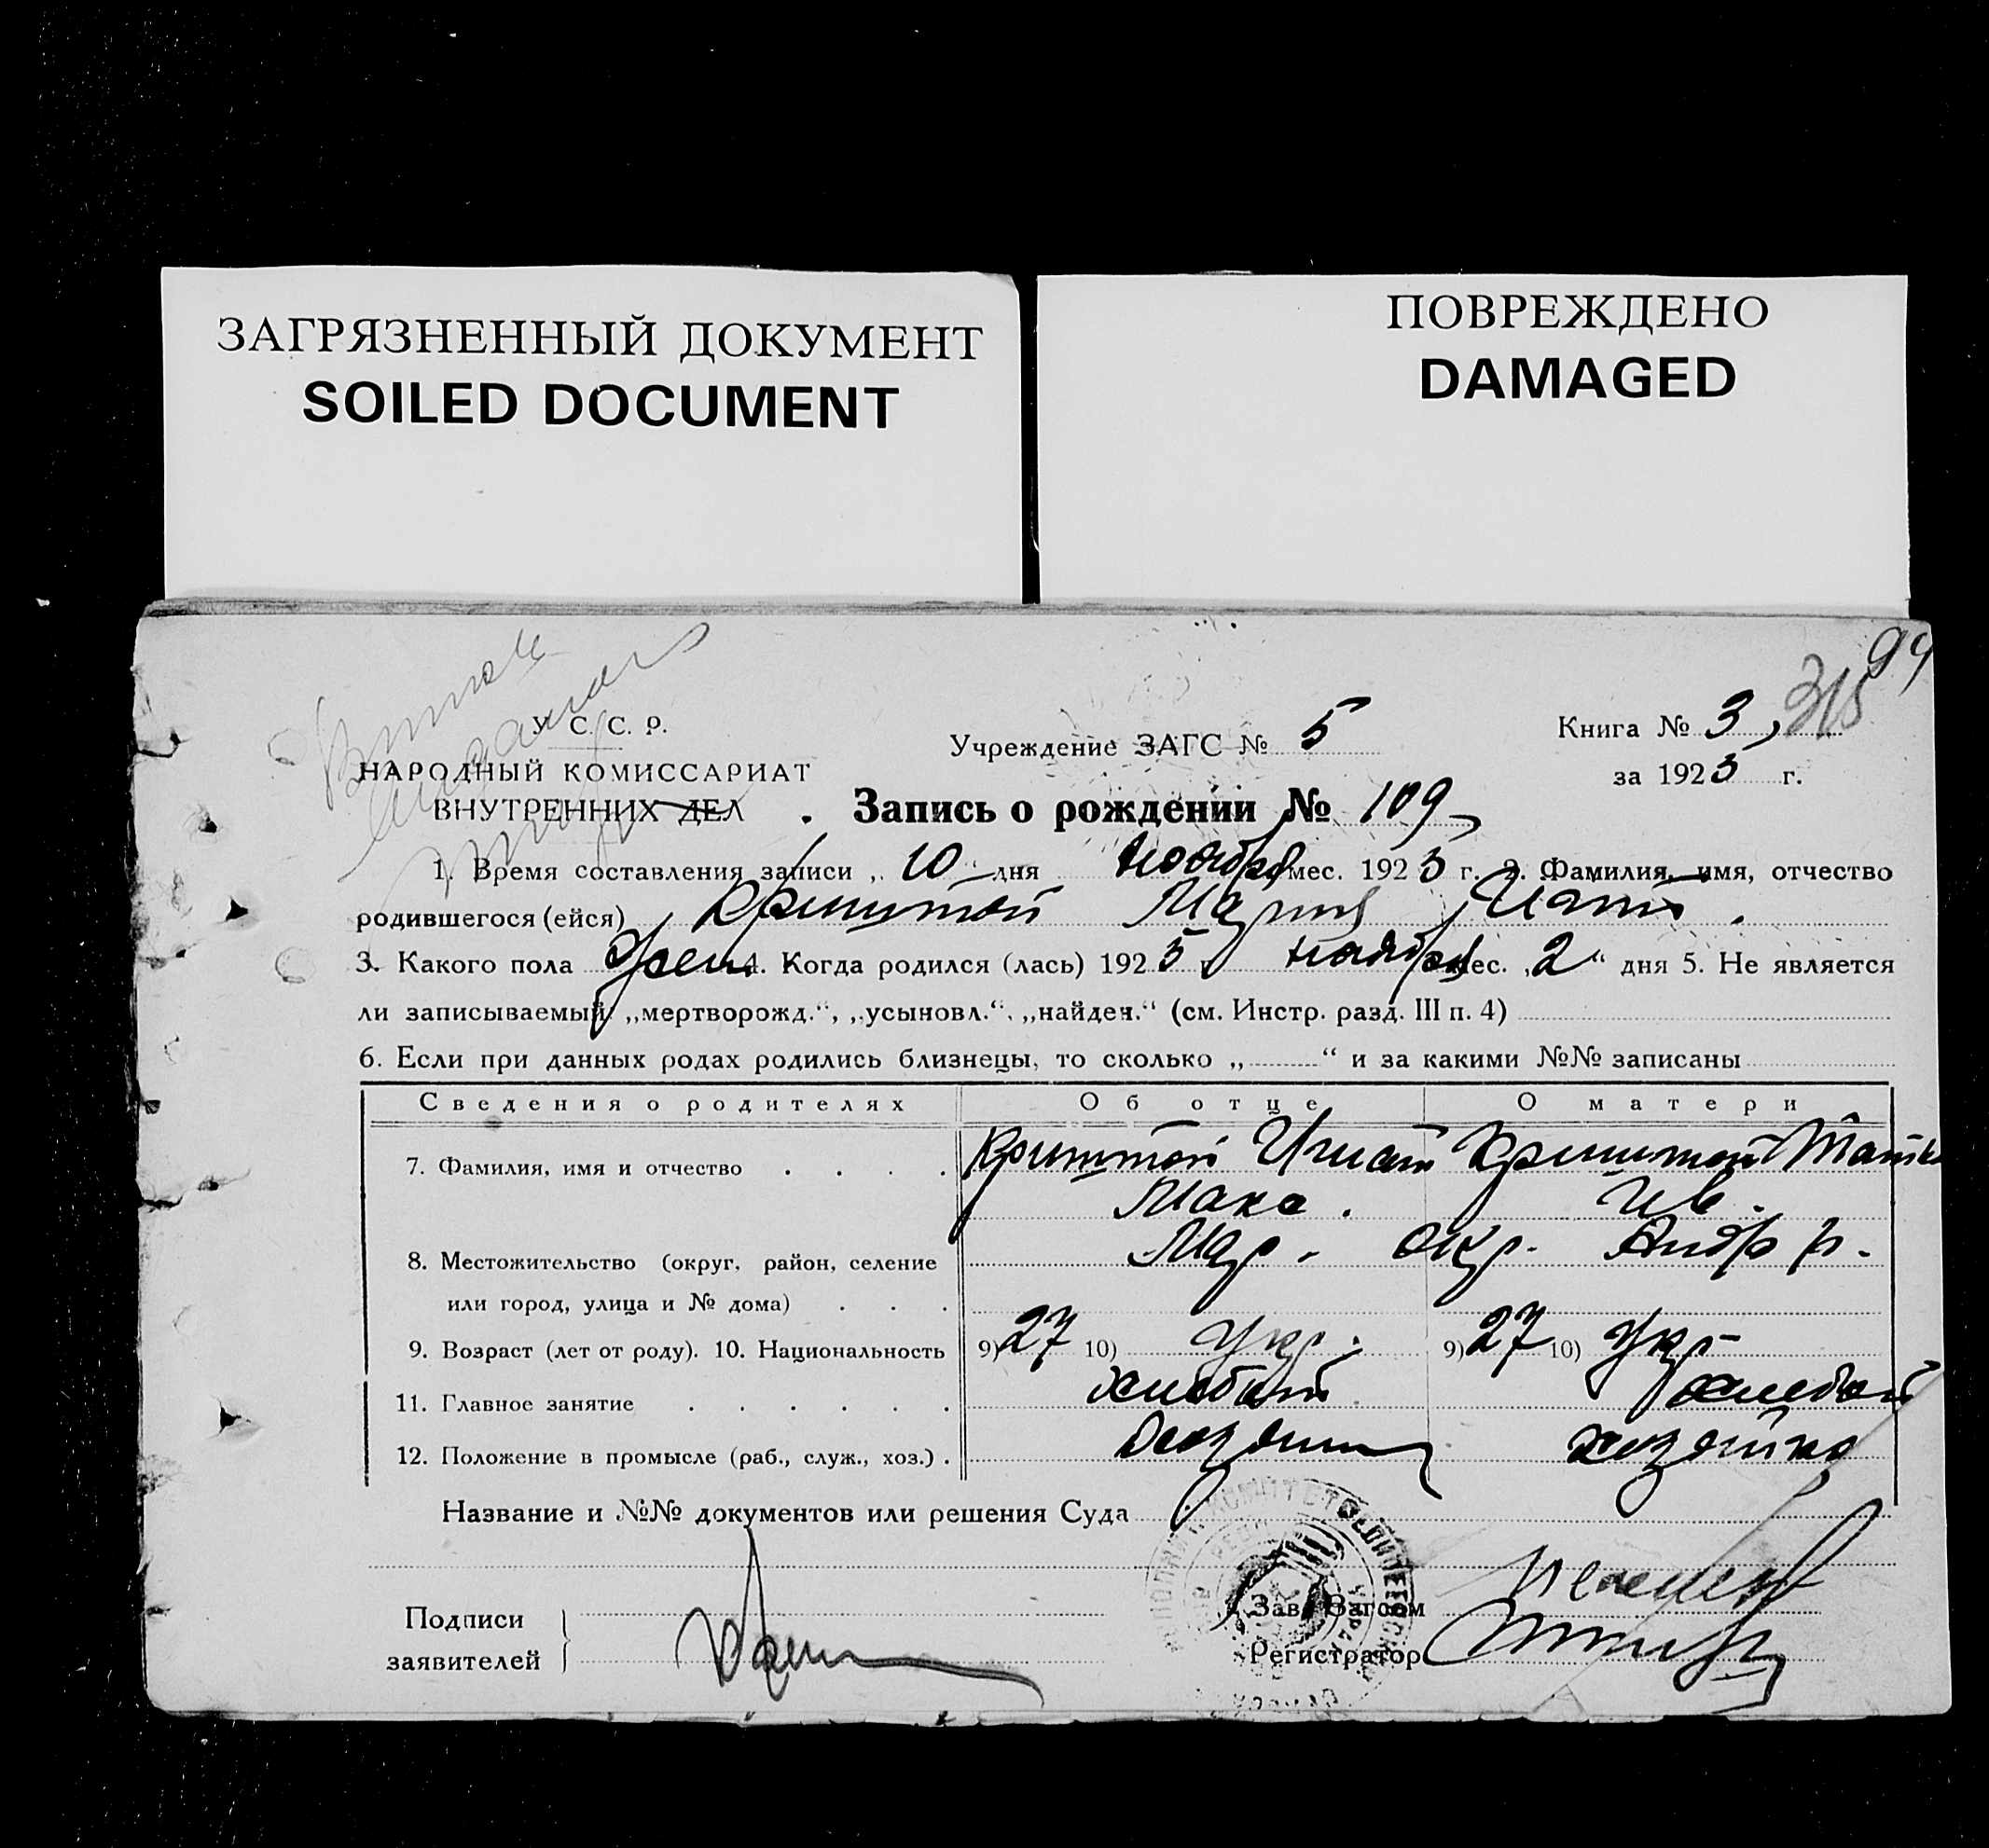 ЗАГРЯЗНЕННЫЙ ДОКУМЕНТ
SOILED DOCUMENT
ПОВРЕЖДЕНО
DAMAGED
94
315
У. С. С. Р.
НАРОДНЫЙ КОМИССАРИАТ
ВНУТРЕННИХ ДЕЛ
Учреждение ЗАГС № 5
Книга № 3
за 1925 г.
Запись о рождении № 109
1. Время составления записи „10" дня ноября мес. 1925 г. 2. Фамилия, имя, отчество
родившегося (ейся) Криштоп Мария Игнат.
3. Какого пола Жен. 4. Когда родился (лась) 1925 г. ноября мес. „2" дня 5. Не является
ли записываемый: „мертворожд.", „усыновл.", „найден." (см. Инстр. разд. III п. 4)
6. Если при данных родах родились близнецы, то сколько „ " и за какими №№ записаны
Сведения о родителях Об отце О матери
7. Фамилия, имя и отчество Криштоп Игнат Криштоп
Макс. Ив.
8. Местожительство (округ, район, селение Мар. окр. Андр р.
или город, улица и № дома)
9. Возраст (лет от роду). 10. Национальность 9) 27 10) Укр. 9) 27 10) Укр
11. Главное занятие
12. Положение в промысле (раб., служ., хоз.) хозяин хозяйка
Название и №№ документов или решения Суда
Подписи
заявителей
Зав. Загсом
Регистратор